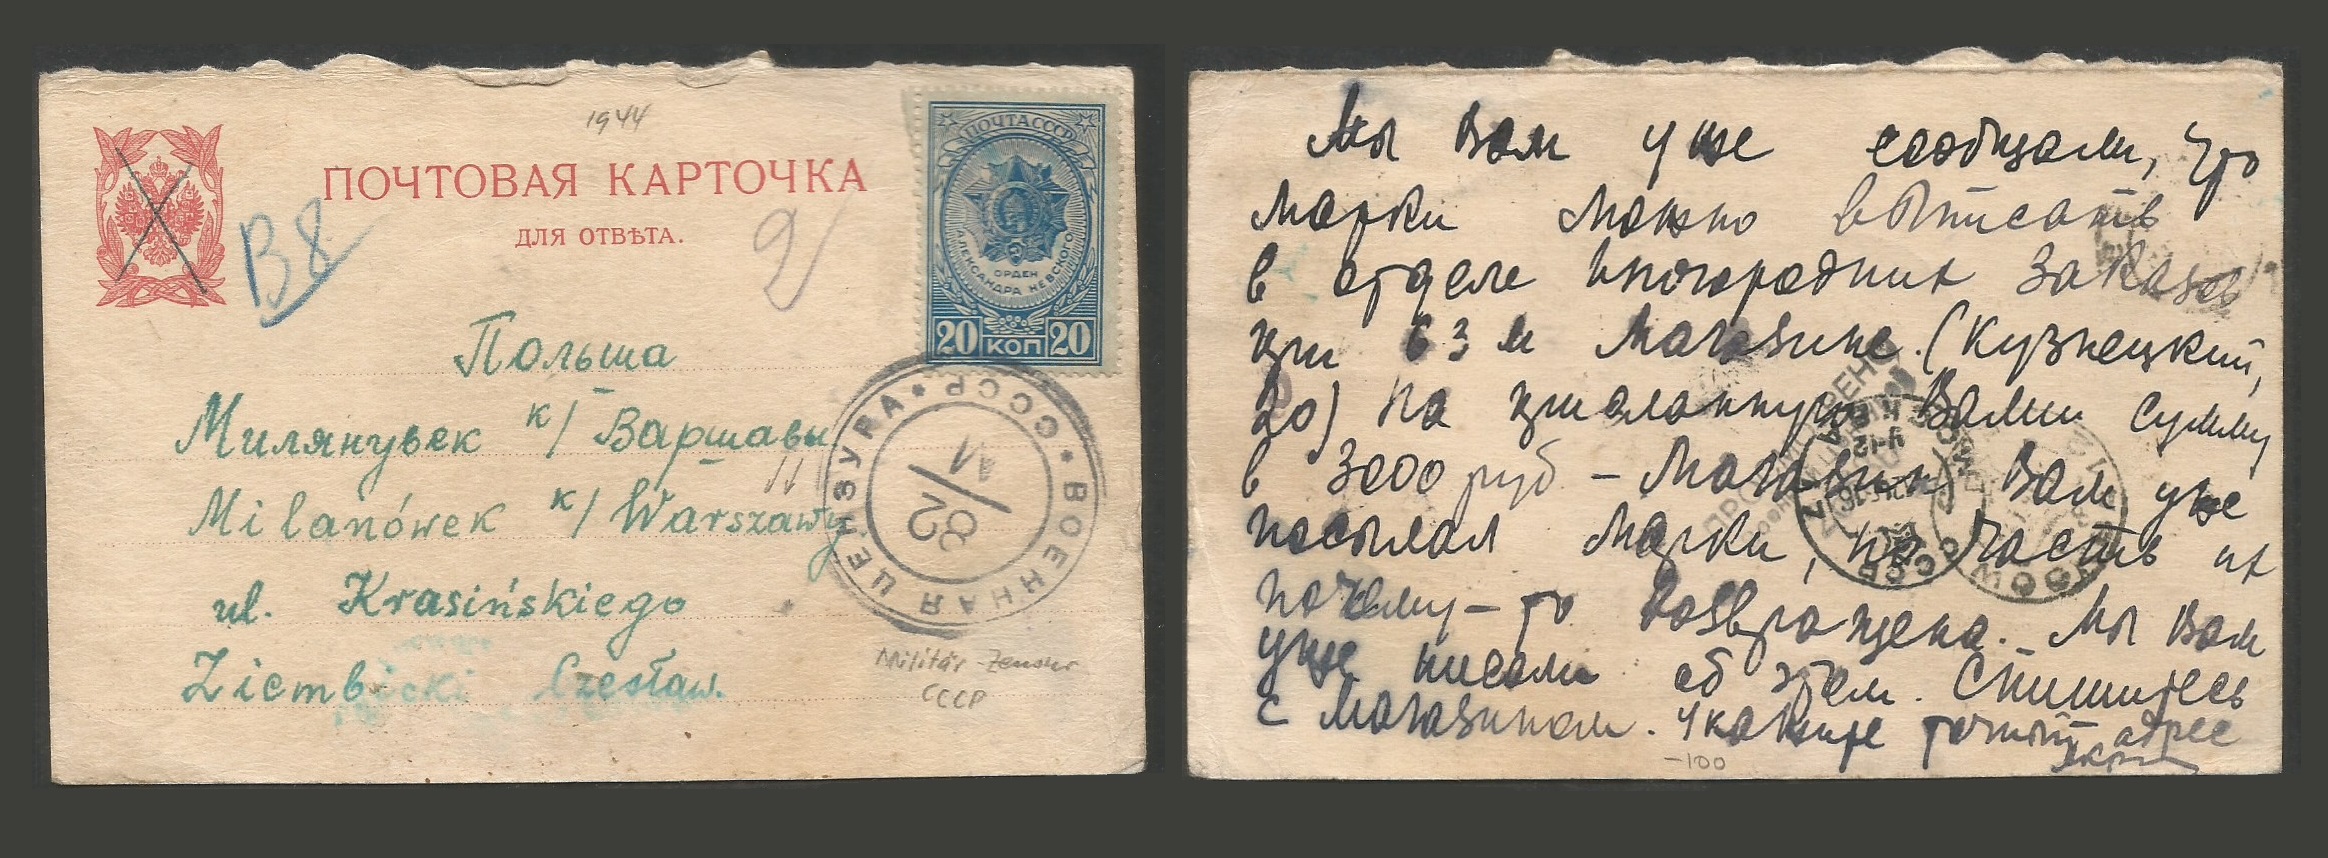 1944
ПОЧТОВАЯ КАРТОЧКА
ДЛЯ ОТВѢТА.
В8
2
ПОЧТА СССР
ОРДЕН
АЛЕКСАНДРА НЕВСКОГО
20 КОП 20
Польша
Милянувек к/ Варшавы
Milanówek к/ Warszawy
ul. Krasińskiego
Ziembicki Czesław.
ВОЕННАЯ ЦЕНЗУРА * СССР *
11/28
Militär-Zensur
СССР
Мы Вам уже сообщали, что
марки можно выписать
в отделе иногородних заказов
при 63 м магазине. (Кузнецкий,
20) На присланную Вами сумму
в 3000 руб - магазин Вам уже
посылал марки, но часть их
почему-то возвращена. Мы Вам
уже писали об этом. Спишитесь
с магазином. Укажите точный адрес
-100